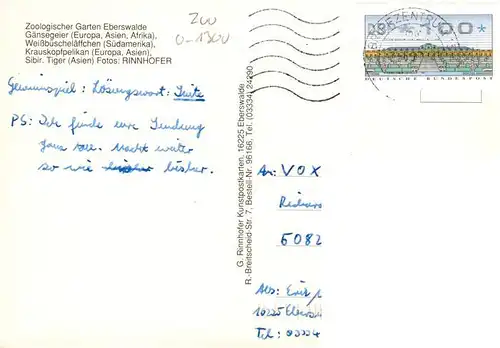 Zoologischer Garten Eberswalde
Gänsegeier (Europa, Asien, Afrika),
Weißbüscheläffchen (Südamerika),
Krauskopfpelikan (Europa, Asien),
Sibir. Tiger (Asien) Fotos: RINNHOFER
ZOO
0-1300
100
DEUTSCHE BUNDESPOST
Gewinnspiel: Lösungswort: Suite
PS: Ich finde eure Sendung
ganz toll. Macht weiter
so wie bisher.
G. Rinnhofer Kunstpostkarten, 16225 Eberswalde
R.-Breitscheid-Str. 7, Bestell-Nr. 96166, Tel. (03334) 24290
An: VOX
6082
Abs:
16225
Tel: 03334